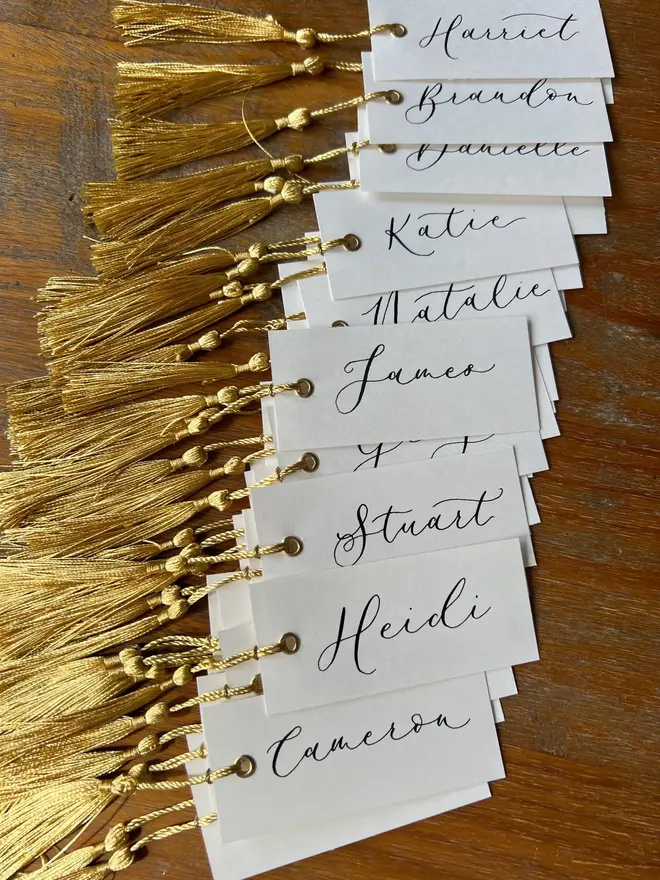 Harriet
Brandon
Danielle
Katie
Natalie
James
Stuart
Heidi
Cameron